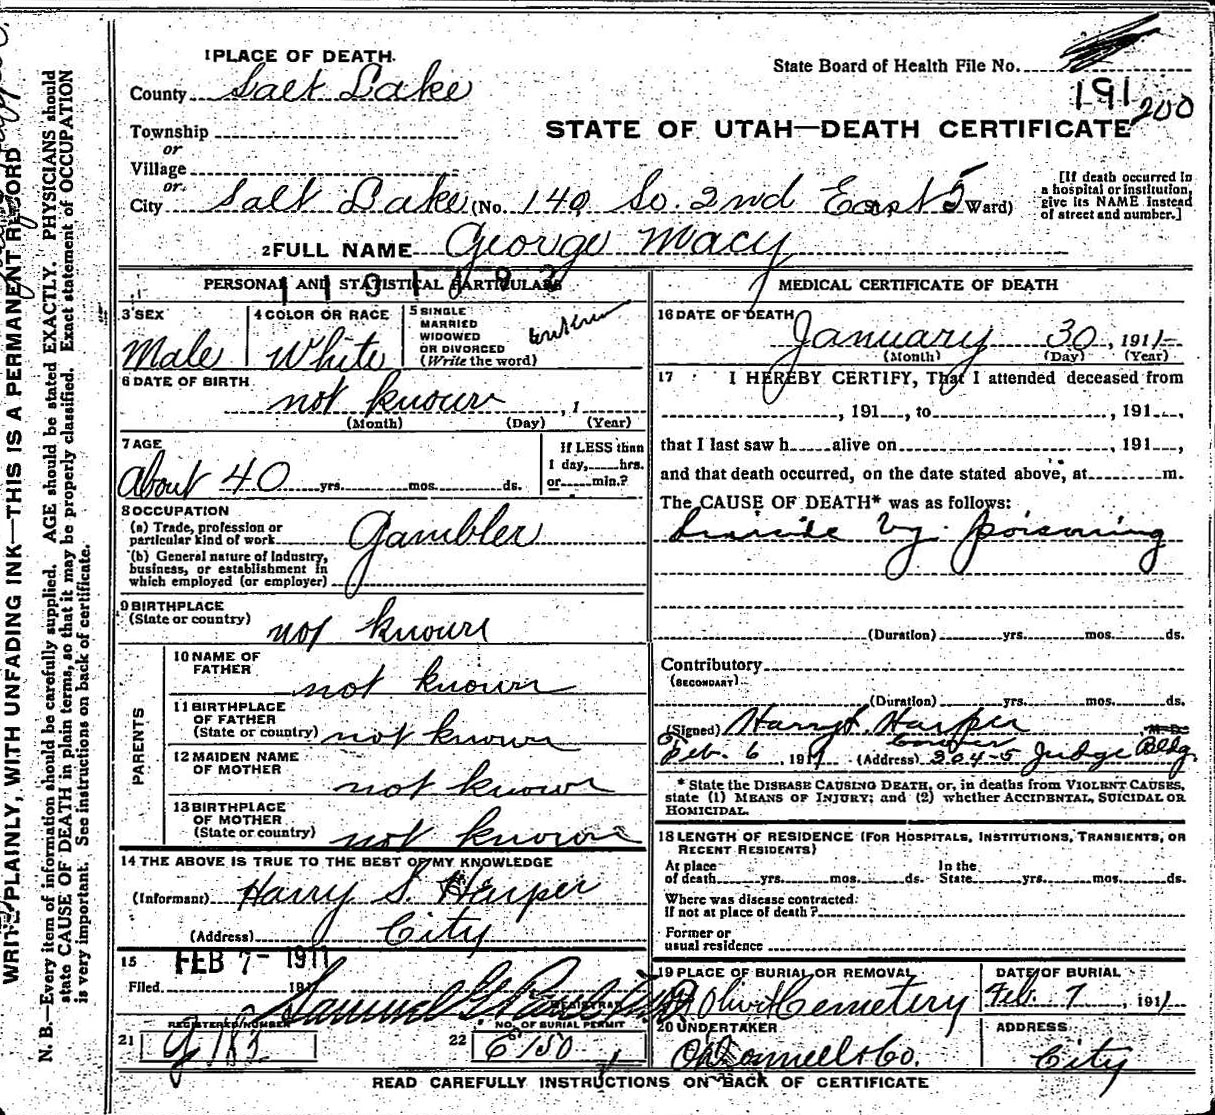 1 PLACE OF DEATH.
State Board of Health File No.
County Salt Lake
191 200
Township
STATE OF UTAH—DEATH CERTIFICATE
or
Village
or
City Salt Lake (No. 140 So. 2nd East 5 Ward)
[If death occurred in a hospital or institution, give its NAME instead of street and number.]
2 FULL NAME George Macy
PERSONAL AND STATISTICAL PARTICULARS
3 SEX
Male
4 COLOR OR RACE
White
5 SINGLE
MARRIED
WIDOWED
OR DIVORCED
(Write the word)
6 DATE OF BIRTH
not known , 1
(Month) (Day) (Year)
7 AGE
About 40 yrs. mos. ds.
If LESS than
1 day, hrs.
or min.?
8 OCCUPATION
(a) Trade, profession or
particular kind of work Gambler
(b) General nature of industry,
business, or establishment in
which employed (or employer)
9 BIRTHPLACE
(State or country) not known
PARENTS
10 NAME OF
FATHER not known
11 BIRTHPLACE
OF FATHER
(State or country) not known
12 MAIDEN NAME
OF MOTHER not known
13 BIRTHPLACE
OF MOTHER
(State or country) not known
14 THE ABOVE IS TRUE TO THE BEST OF MY KNOWLEDGE
(Informant) Harry S. Harper
(Address) City
15 FEB 7- 1911
Filed 191
REGISTRAR
REGISTERED NUMBER
21
22 NO. OF BURIAL PERMIT
6150
MEDICAL CERTIFICATE OF DEATH
16 DATE OF DEATH
January 30, 1911
(Month) (Day) (Year)
17 I HEREBY CERTIFY, That I attended deceased from
, 191 , to , 191 ,
that I last saw h alive on , 191 ,
and that death occurred, on the date stated above, at m.
The CAUSE OF DEATH* was as follows:
Suicide by poisoning
(Duration) yrs. mos. ds.
Contributory
(SECONDARY)
(Duration) yrs. mos. ds.
(Signed) Harry S. Harper M. D.
Coroner
Feb. 6 191 (Address) 204-5 Judge Bldg.
* State the DISEASE CAUSING DEATH, or, in deaths from VIOLENT CAUSES,
state (1) MEANS OF INJURY; and (2) whether ACCIDENTAL, SUICIDAL OR
HOMICIDAL.
18 LENGTH OF RESIDENCE (FOR HOSPITALS, INSTITUTIONS, TRANSIENTS, OR
RECENT RESIDENTS)
At place
of death yrs. mos. ds.
In the
State yrs. mos. ds.
Where was disease contracted
If not at place of death?
Former or
usual residence
19 PLACE OF BURIAL OR REMOVAL
Mt Olivet Cemetery
DATE OF BURIAL
Feb. 7, 1911
20 UNDERTAKER
O'Donnell & Co.
ADDRESS
City
READ CAREFULLY INSTRUCTIONS ON BACK OF CERTIFICATE
WRITE PLAINLY, WITH UNFADING INK—THIS IS A PERMANENT RECORD
N. B.—Every item of information should be carefully supplied. AGE should be stated EXACTLY. PHYSICIANS should
state CAUSE OF DEATH in plain terms, so that it may be properly classified. Exact statement of OCCUPATION
is very important. See instructions on back of certificate.